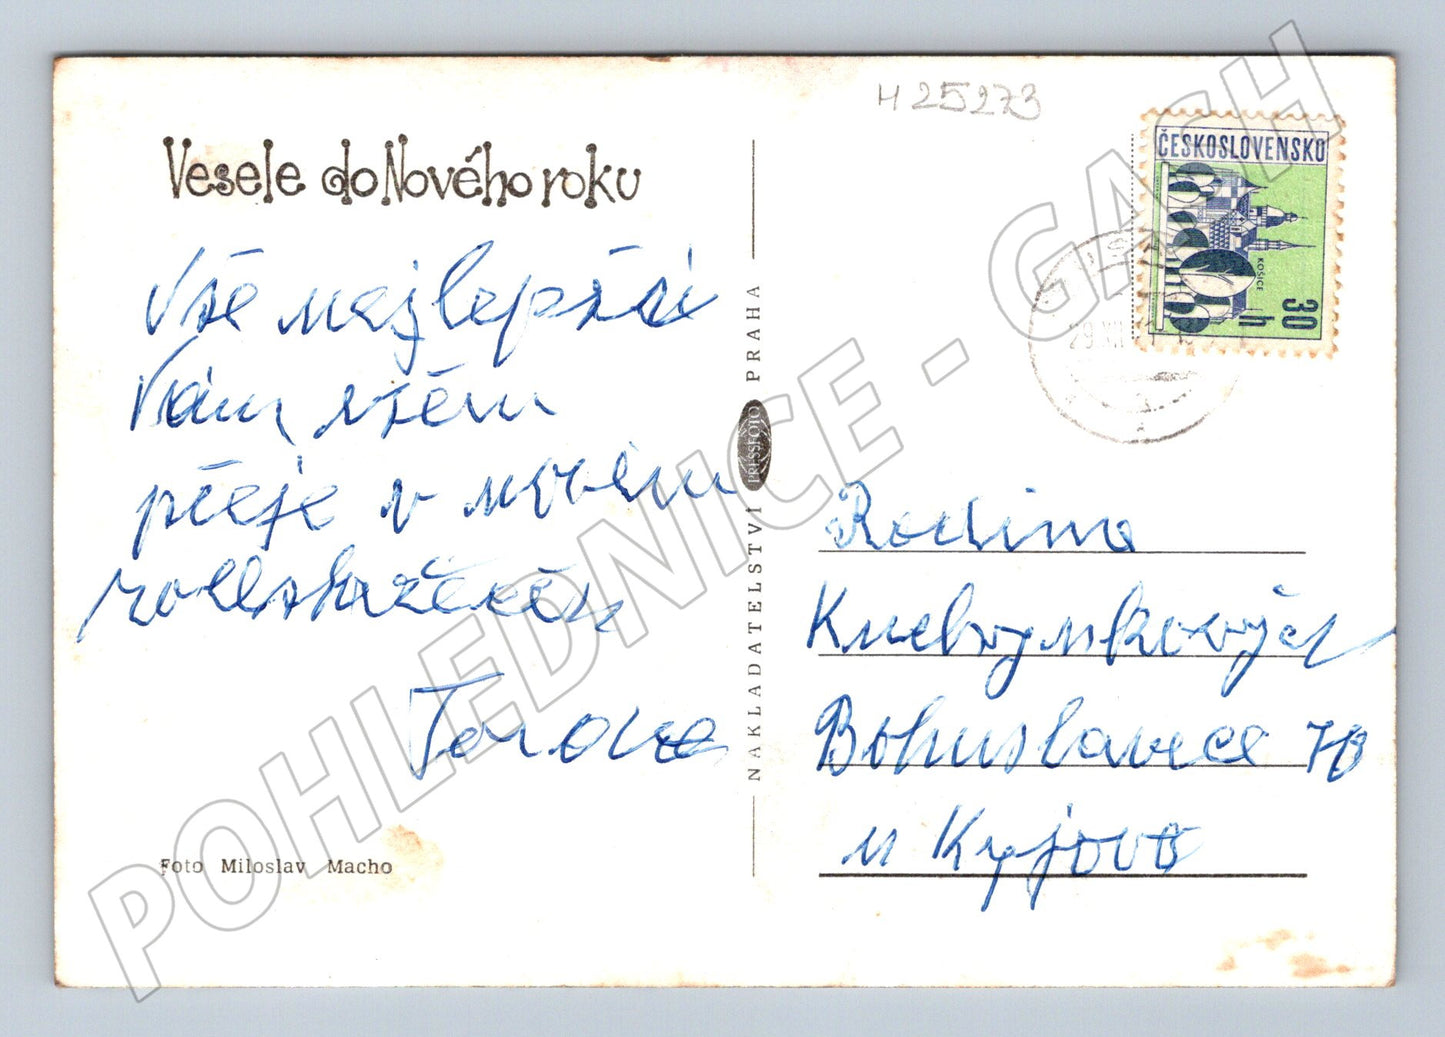 H 25273
Vesele do Nového roku
Vše nejlepšsi
Vám všem
přeje v novém
roce
ČESKOSLOVENSKO
KOŠICE
30
h
29.XII
NAKLADATELSTVÍ PRESSFOTO PRAHA
Rodina
Bohuslavice 78
u Kyjova
Foto Miloslav Macho
POHLEDNICE - GASH